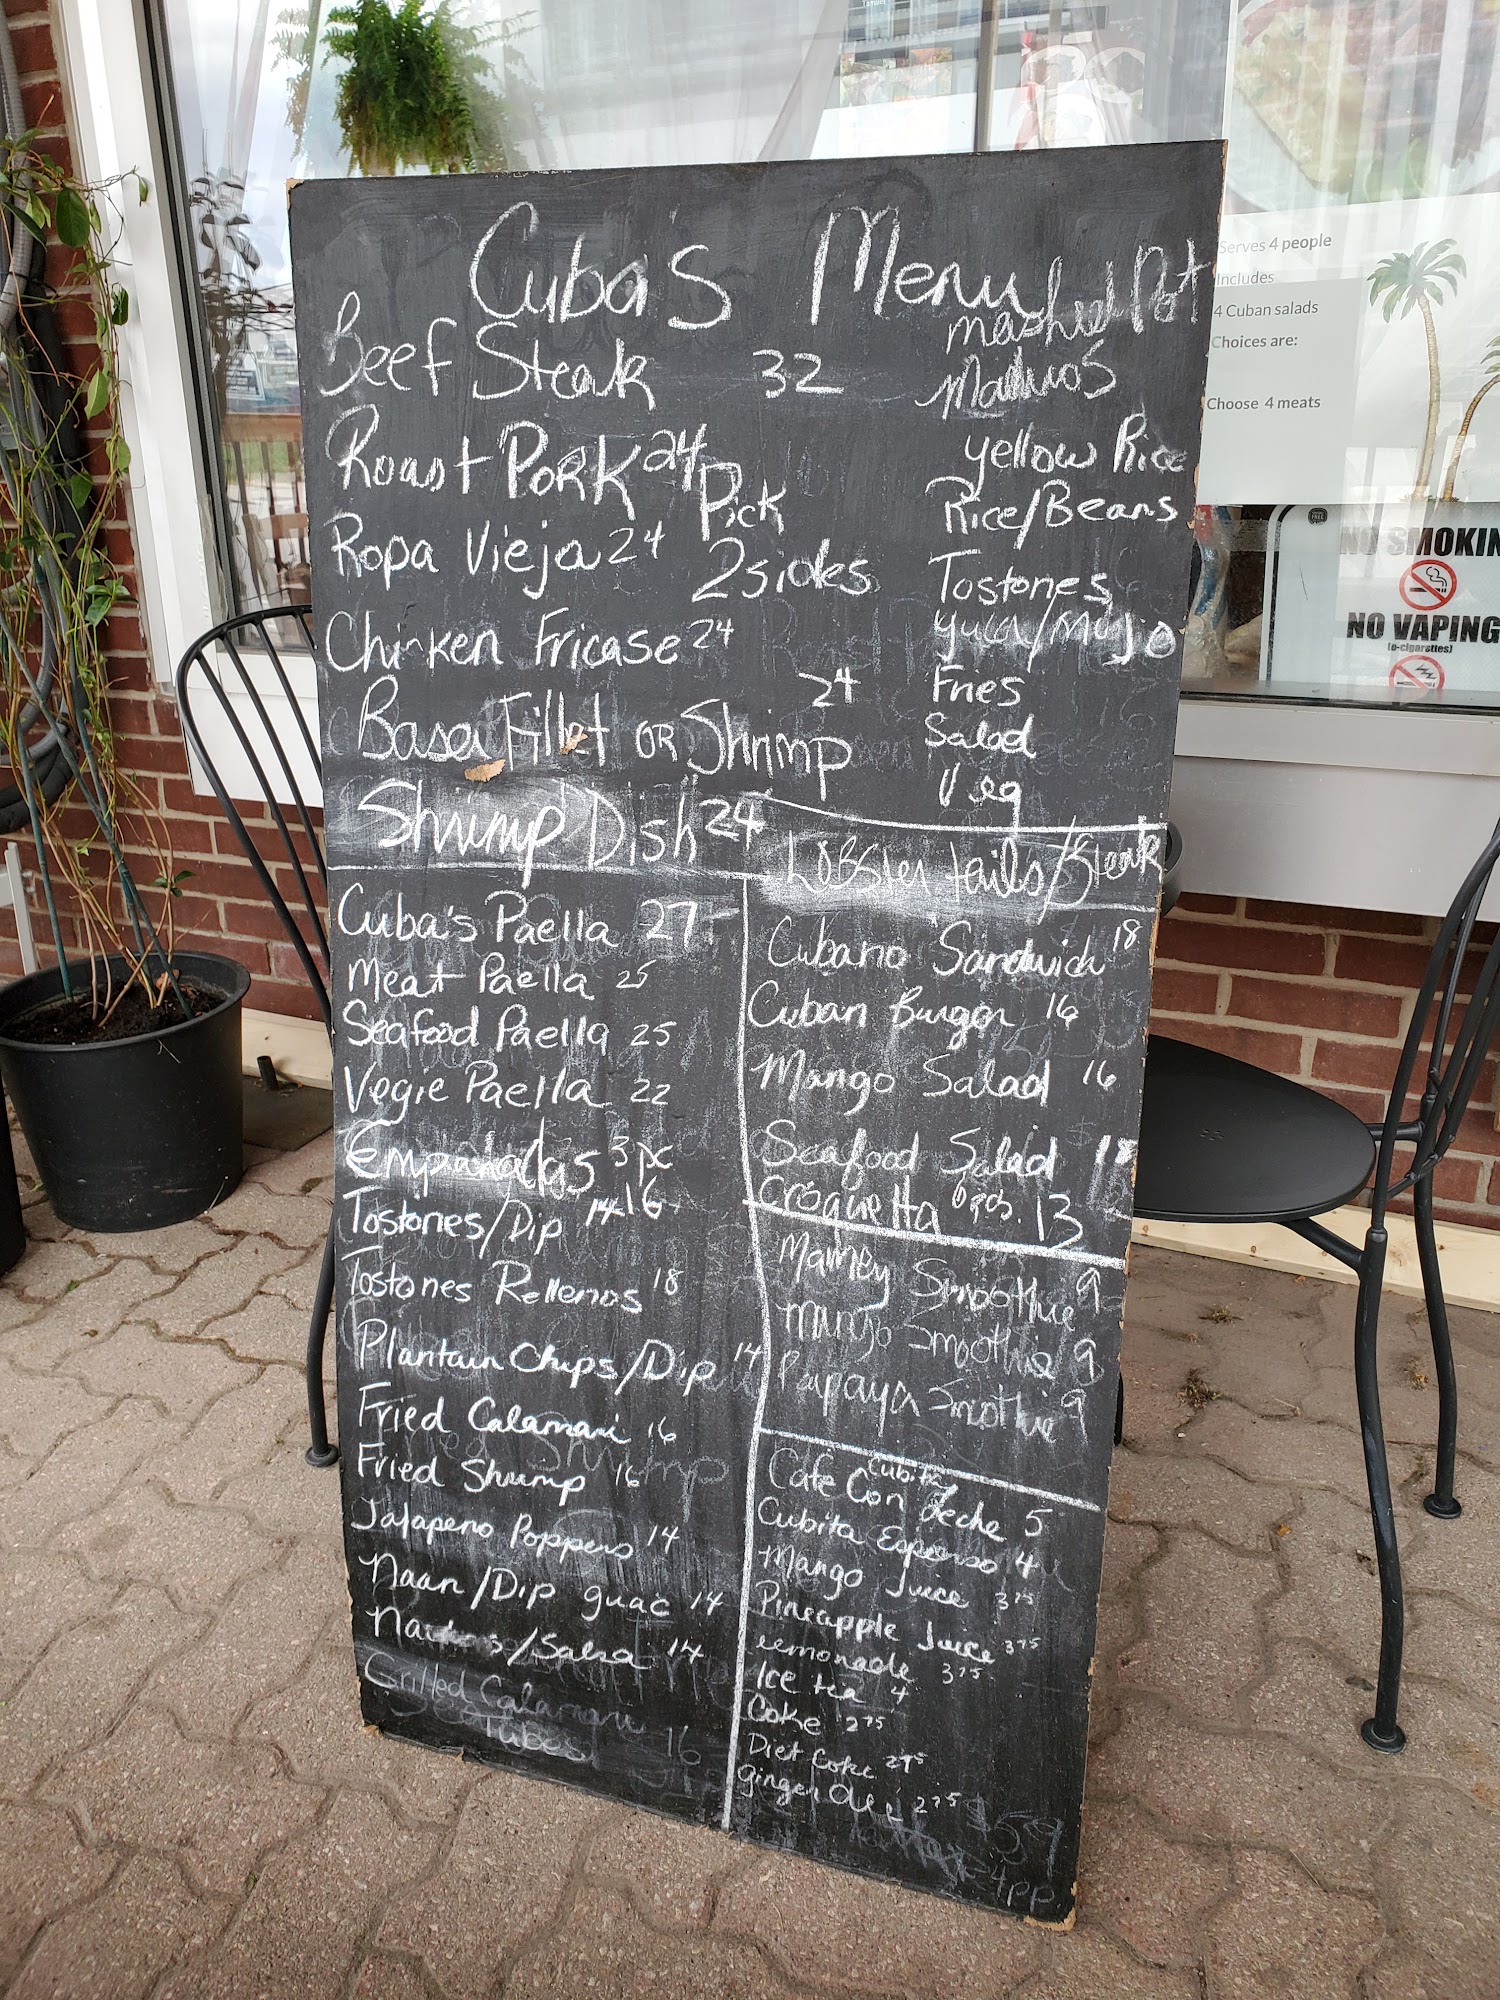 Cuba's Menu
Beef Steak 32
Roast Pork 24
Ropa Vieja 24
Pick
2 sides
Chicken Fricase 24
Basa Fillet OR Shrimp 24
Shrimp Dish 24
mashed Pot
Maduros
yellow Rice
Rice/Beans
Tostones
yuca/Mojo
Fries
Salad
Veg
Cuba's Paella 27
Meat Paella 25
Seafood Paella 25
Vegie Paella 22
Empanadas 3pc
16
Tostones/Dip 14
Tostones Rellenos 18
Plantain Chips/Dip 14
Fried Calamari 16
Fried Shrimp 16
Jalapeno Poppers 14
Naan/Dip guac 14
Nachos/Salsa 14
Grilled Calamari 16
Tubes
Lobster tails/Steak
Cubano Sandwich 18
Cuban Burger 16
Mango Salad 16
Seafood Salad 18
Croquetta pcs. 13
Mamey Smoothie 9
Mango Smoothie 9
Papaya Smoothie 9
Cubita
Cafe Con Leche 5
Cubita Espresso 4
Mango Juice 3 75
Pineapple Juice 3 75
lemonade 3 75
Ice tea 4
Coke 2 75
Diet Coke 2 75
Ginger Ale 2 75
$59
4pp
Serves 4 people
Includes
4 Cuban salads
Choices are:
Choose 4 meats
NO SMOKIN
NO VAPING
(e-cigarettes)